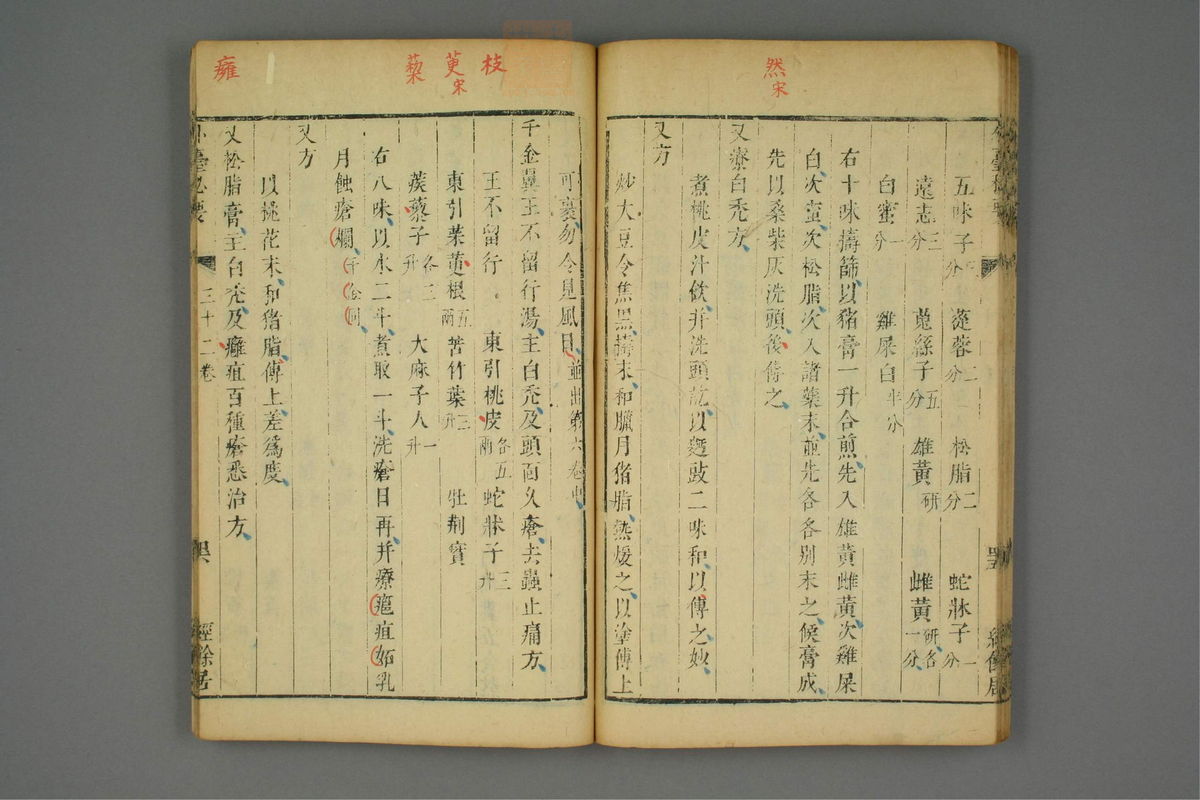 然宋
五味子三分 蓯蓉二分 松脂二分 蛇牀子一分
遠志三分 菟絲子五分 雄黃研 雌黃研各一分
白蜜一分 雞屎白半分
右十味擣篩以猪膏一升合煎先入雄黃雌黃次雞屎
白次蜜次松脂次入諸藥末並先各各別末之候膏成
先以桑柴灰洗頭後傅之
又療白禿方
煮桃皮汁飲并洗頭訖以麪豉二味和以傅之妙
又方
炒大豆令焦黑擣末和臘月猪脂熱煖之以塗傅上
枝
萸宋
蔾
癰
可裹勿令見風日並出第六卷中
千金翼王不留行湯主白禿及頭面久瘡去蟲止痛方
王不留行 東引桃皮各五兩 蛇牀子三升 牡荆實
東引茱萸根五兩 苦竹葉三升
蒺蔾子各三升 大麻子人一升
右八味以水二斗煮取一斗洗瘡日再并療疽妬乳
月蝕瘡爛千金同
又方
以桃花末和猪脂傅上差爲度
又松脂膏主白禿及癰疽百種瘡悉治方
三十二卷
經餘居